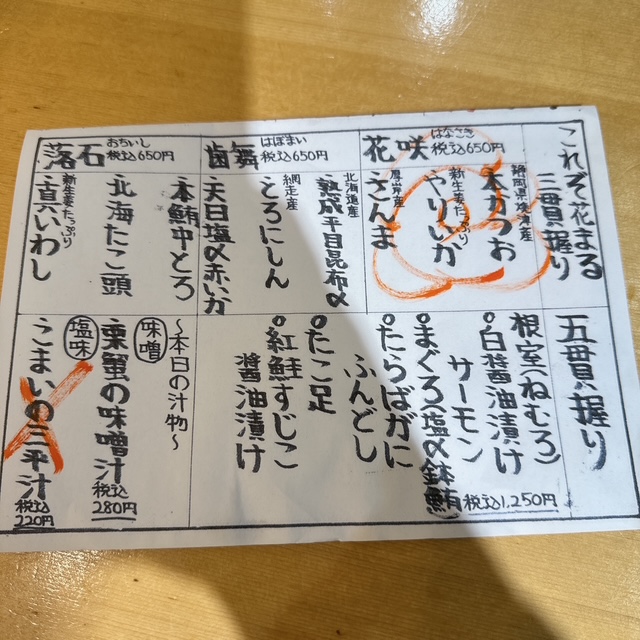 これぞ花まる
三貫握り
花咲 はなさき 税込650円
静岡県焼津産
本かつお
新生姜たっぷり
やりいか
厚岸産
さんま
歯舞 はぼまい 税込650円
北海道産
熟成平目昆布〆
網走産
とろにしん
天日塩〆赤いか
落石 おちいし 税込650円
本鮪中とろ
北海たこ頭
新生姜たっぷり
真いわし
五貫握り
根室(ねむろ)
○白醤油漬け
サーモン
○まぐろ(塩〆鉢鮪)
○たらばがに
ふんどし
○たこ足
○紅鮭すじこ
醬油漬け
税込1,250円
〜本日の汁物〜
味噌
栗蟹の味噌汁
税込
280円
塩味
こまいの三平汁
税込
220円